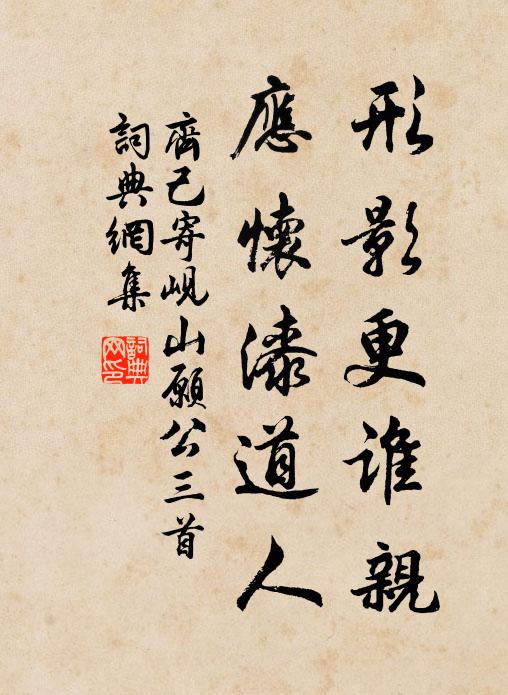 形影更誰親
應懷漆道人
齊己寄峴山願公三首
詞典網集
詞典網印